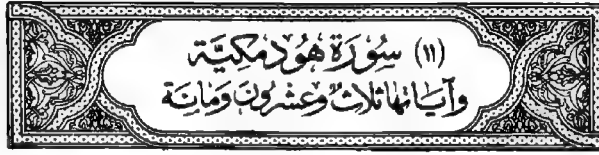 (١١) سُورَةُ هُودٍ مَكِيَّة
وَآيَاتُهَا ثَلَاثٌ وَعِشْرُونَ وَمَائَة